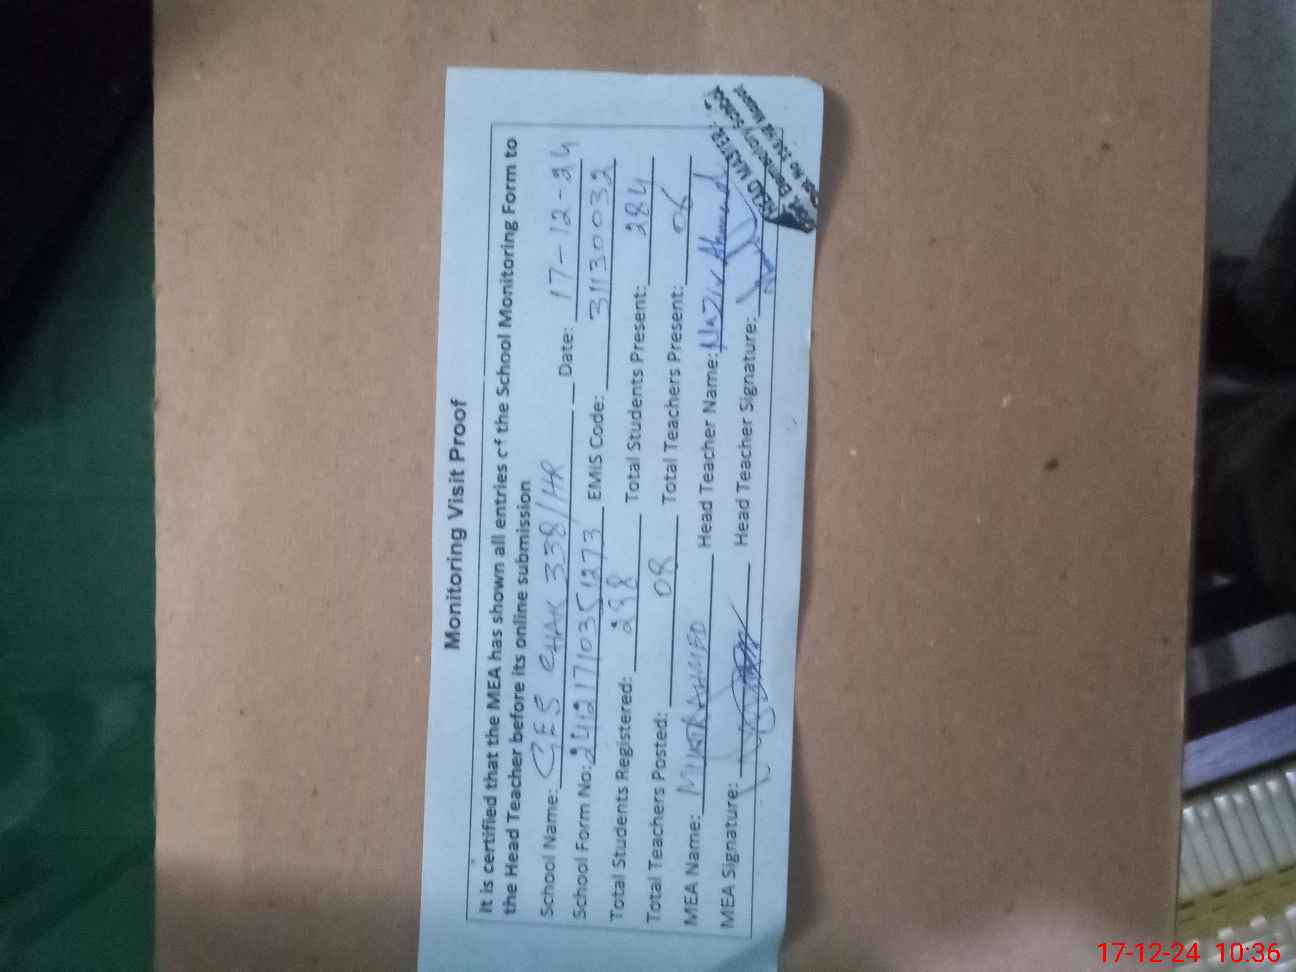 Monitoring Visit Proof
It is certified that the MEA has shown all entries of the School Monitoring Form to
the Head Teacher before its online submission
School Name: GES CHAK 338/HR Date: 17-12-24
School Form No: 24121710351273 EMIS Code: 31130032
Total Students Registered: 298 Total Students Present: 284
Total Teachers Posted: 08 Total Teachers Present: 06
MEA Name: AHMED Head Teacher Name: Nazir Ahmed
MEA Signature: Head Teacher Signature:
HEAD MASTER
Govt. Elementary School
Chak No 338/HR
17-12-24 10:36